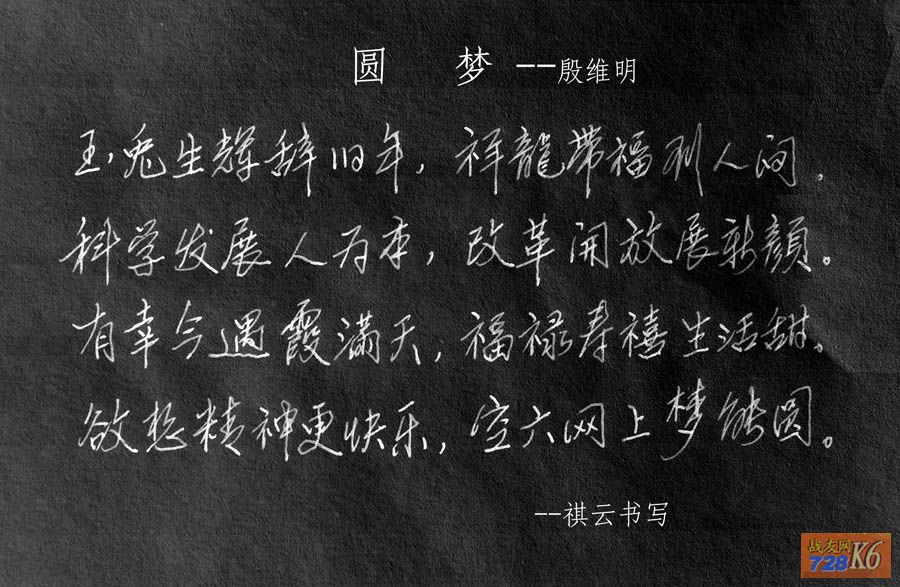 圆 梦 --殷维明
玉兔生辉辞旧年，祥龍带福到人间。
科学发展人为本，改革開放展新顔。
有幸今遇霞满天，福禄寿禧生活甜。
欲想精神更快乐，空六网上梦能圆。
--祺云书写
战友网
728K6